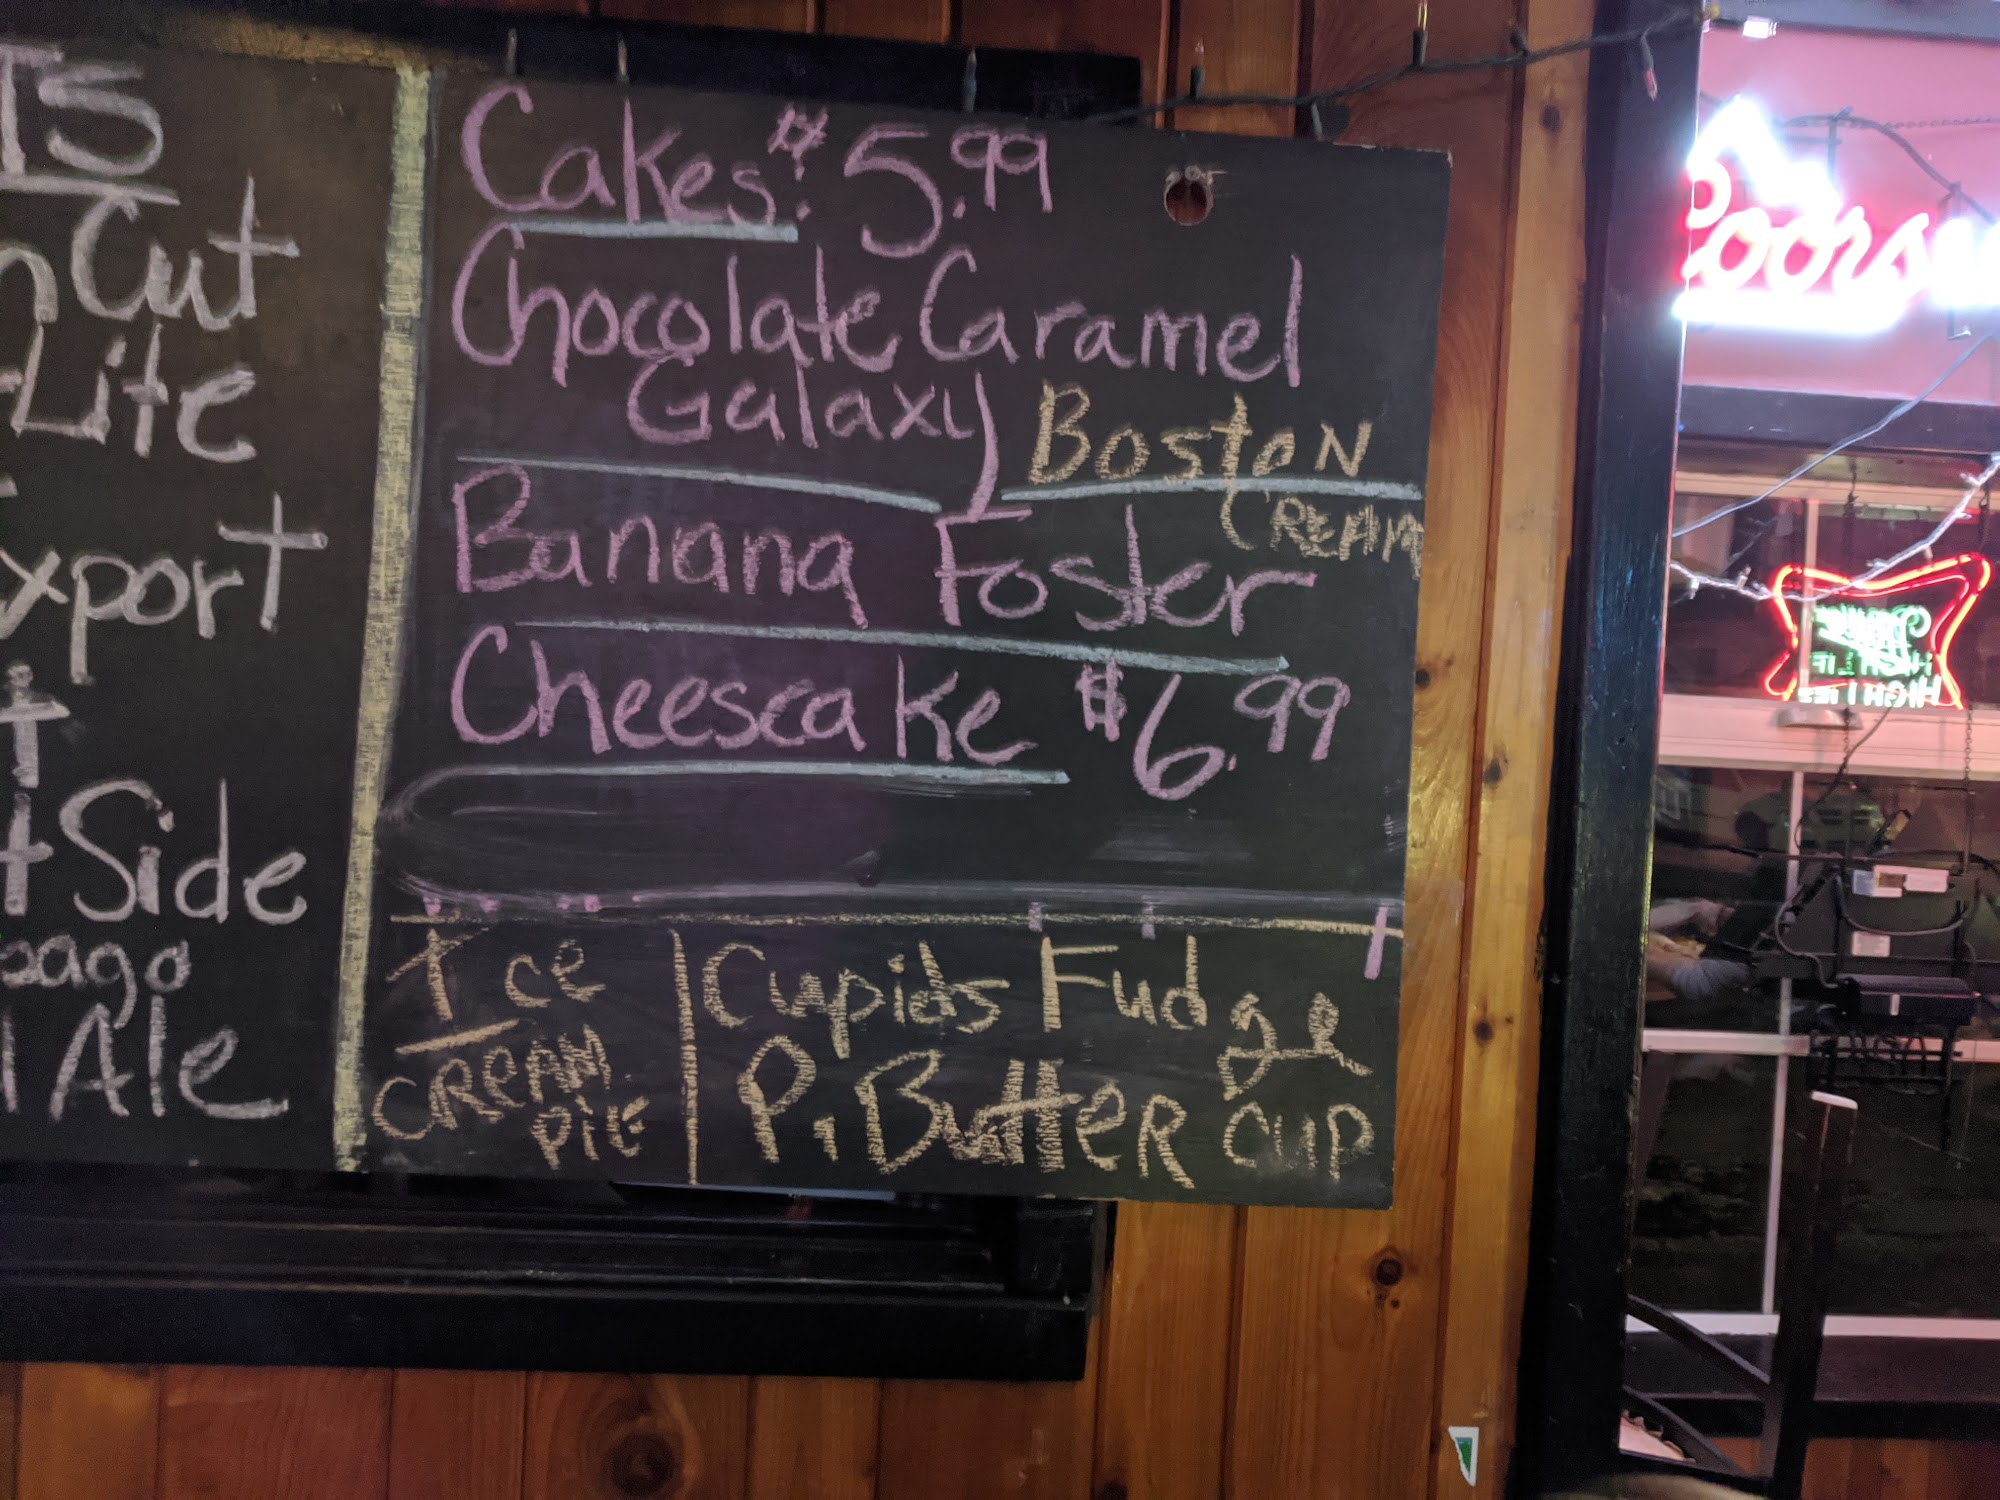 TS
Cut
Lite
Export
Side
Ale
Cakes: $5.99
Chocolate Caramel
Galaxy
Boston
CREAM
Banana Foster
Cheesecake $6.99
Ice
CREAM
PIE
Cupids Fudge
P. Butter CUP
Coors
HIGH LIFE